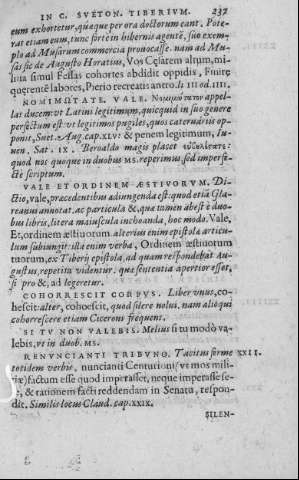 IN C. SVETON. TIBERIVM. 237
eum exhortetur, quæque per ora doctorum eant. Pote-
rat etiam eum, tunc forte in hibernis agentẽ, suo exem-
plo ad Musarum commercia prouocasse. nam ad Mu-
sas sic de Augusto Horatius, Vos Cæsarem altum, mi-
litia simul Fessas cohortes abdidit oppidis, Finire
querentẽ labores, Pierio recreatis antro. li III od. IIII.
NOMIMΩTATE. VALE. Νομιμώτατον appel-
lat ducem: vt Latini legitimum, quicquid in suo genere
perfectum est: vt legitimos pugiles, quos cateruariis op-
ponit, Suet. Aug. cap. XLV: & penem legitimum, Iu-
uen. Sat. IX. Beroaldo magis placet
quod nos quoque in duobus MS. reperimus, sed imperfe-
ctè scriptum.
VALE ET ORDINEM ÆSTIVORVM. Di-
ctio, vale, præcedentibus adiungenda est: quod etiã Gla-
reanus annotat. ac particula &, quæ tamen abest è duo-
bus libris, litera maiuscula inchoanda, hoc modo. Vale,
Et, ordinem æstiuorum alterius enim epistolæ articu-
lum subiungit: illa enim verba, Ordinem æstiuorum
tuorum, ex Tiberij epistola, ad quam respondebat Au-
gustus, repetita videntur. quæ sententia apertior esset,
si pro &, ad legeretur.
COHORRESCIT CORPVS. Liber vnus, co-
hescit: alter, cohoescit, quod silere nolui. nam aliôqui
cohorrescere etiam Ciceroni frequens.
SI TV NON VALEBIS. Melius si tu modò va-
lebis, vt in duob. MS.
RENVNCIANTI TRIBVNO. Tacitus ferme XXII.
totidem verbis, nuncianti Centurioni (vt mos mili-
tiæ) factum esse quod imperasset, neque imperasse se-
se, & rationem facti reddendam in Senatu, respon-
dit. Similis locus Claud. cap. XXIX.
SILEN-